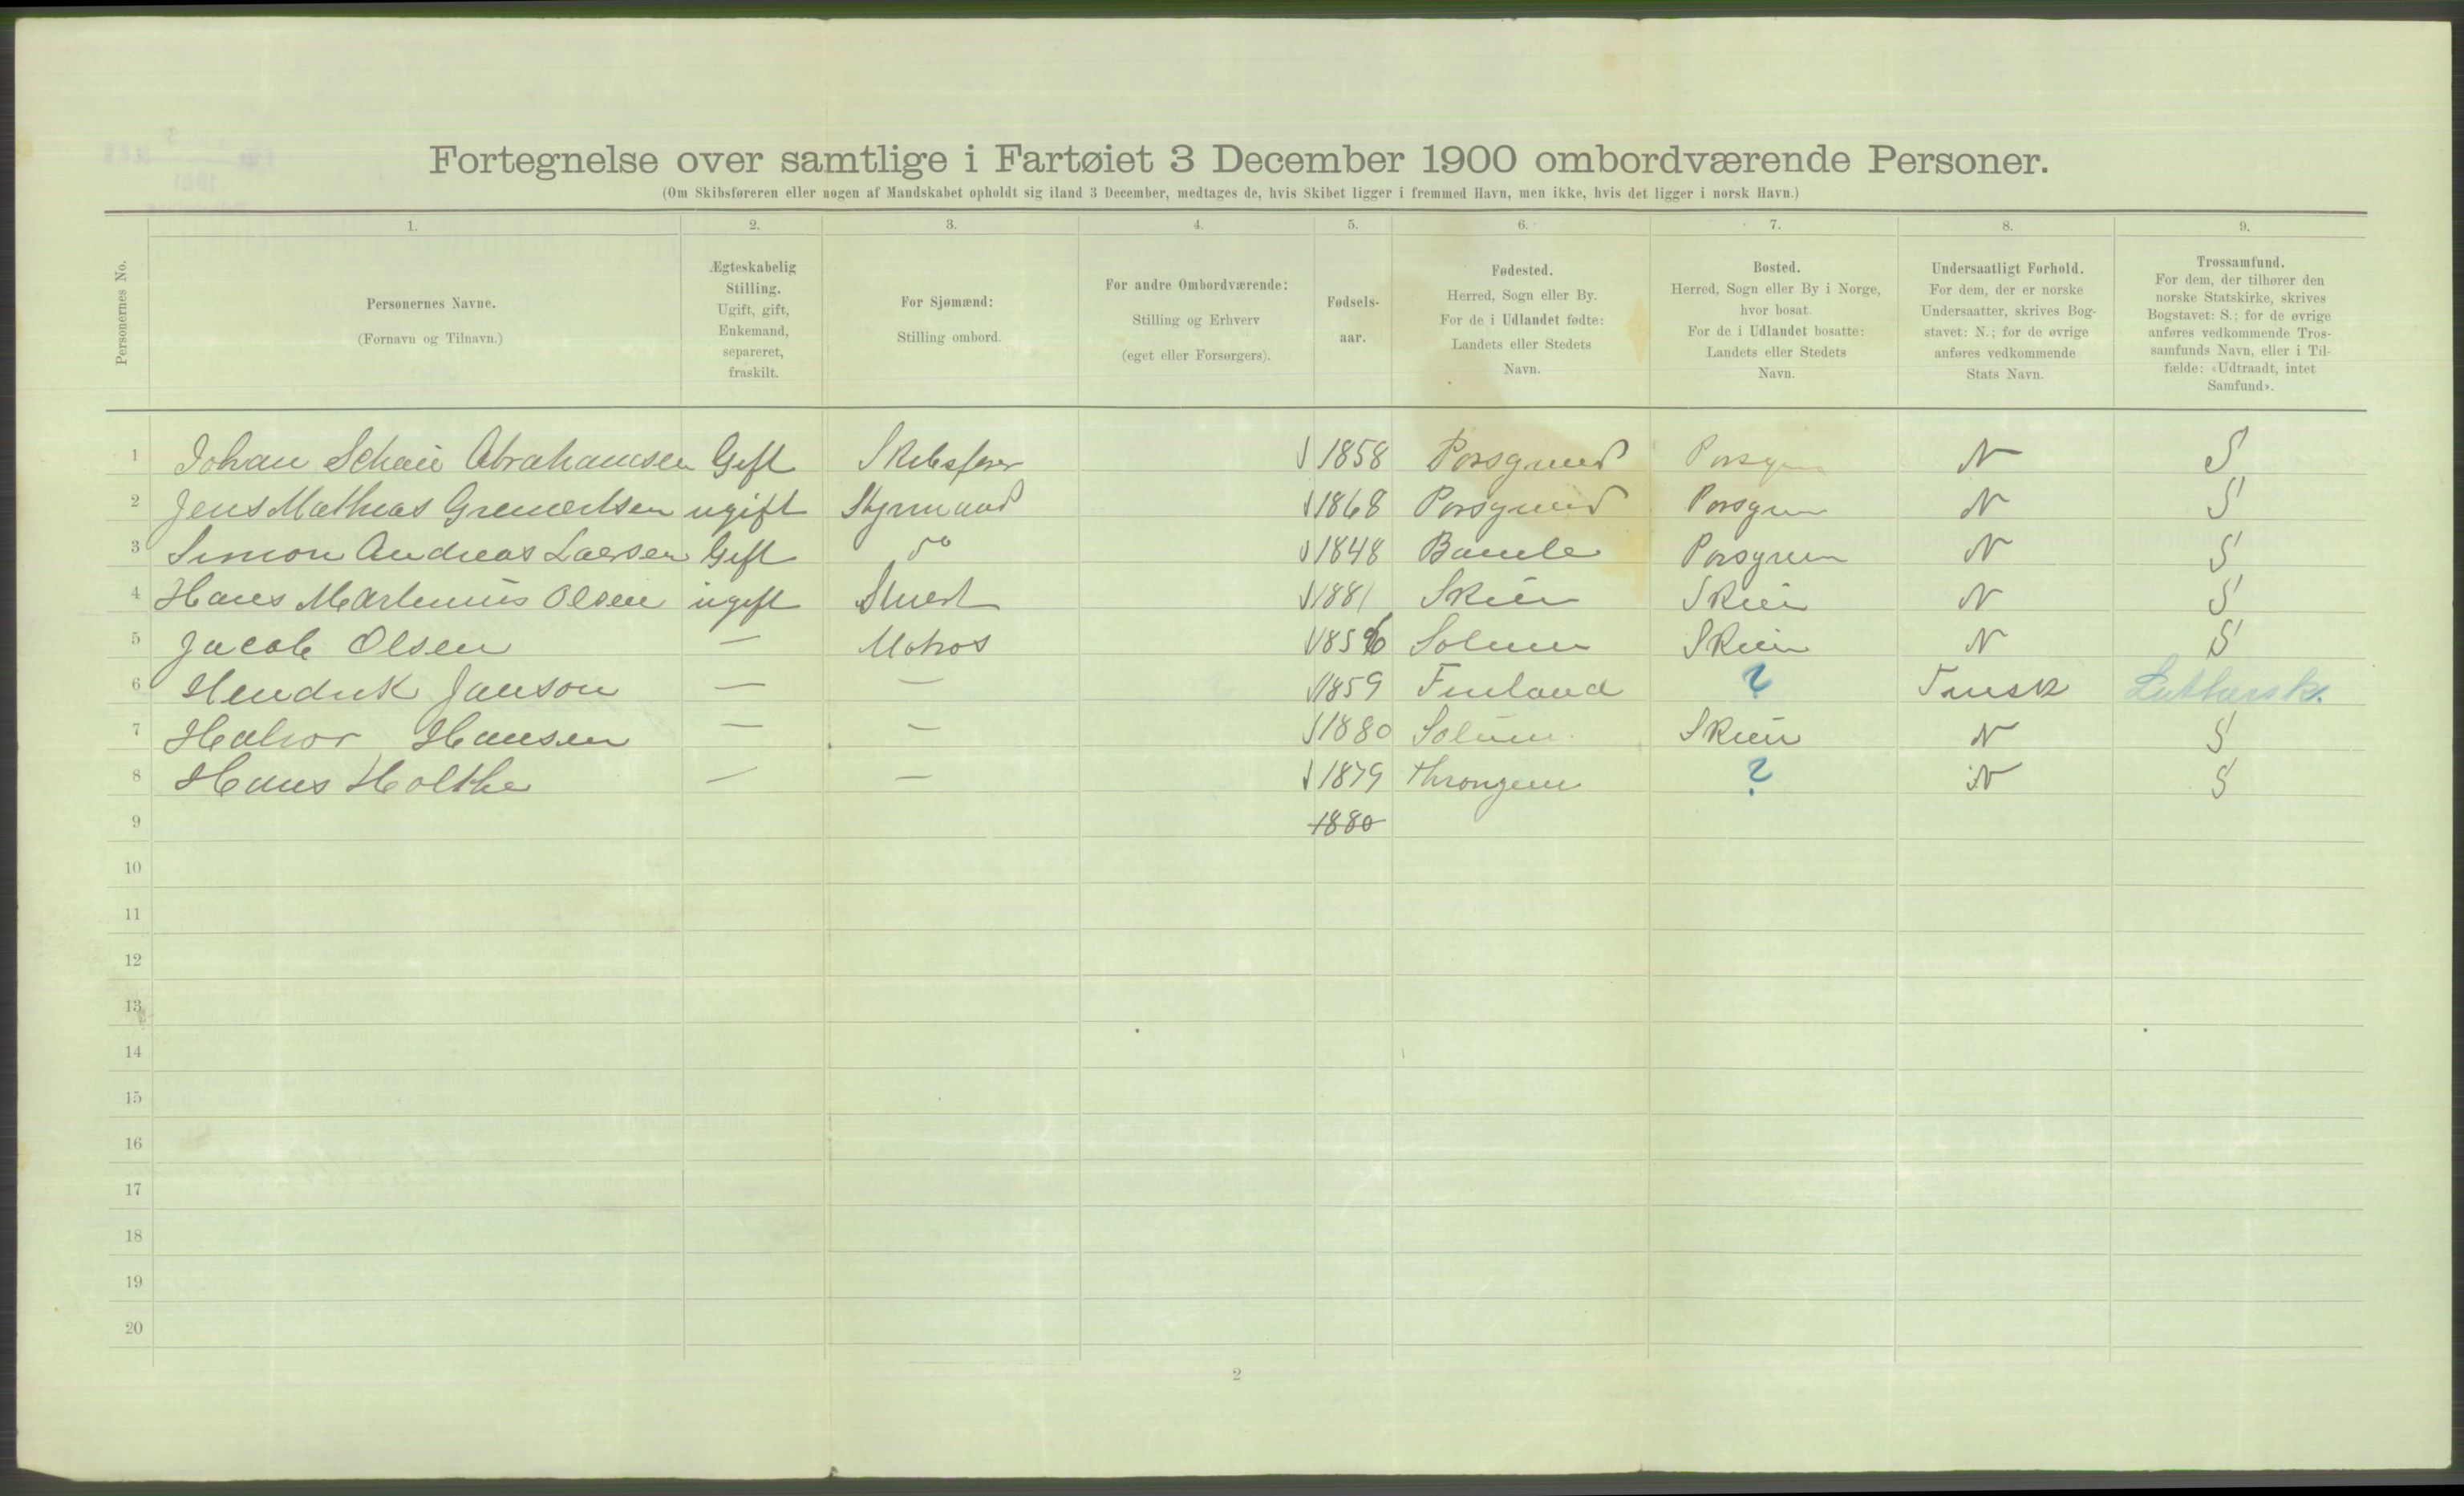 Fortegnelse over samtlige i Fartøiet 3 December 1900 ombordværende Personer.
(Om Skibsføreren eller nogen af Mandskabet opholdt sig iland 3 December, medtages de, hvis Skibet ligger i fremmed Havn, men ikke, hvis det ligger i norsk Havn.)
Personernes No.
1.
Personernes Navne.
(Fornavn og Tilnavn.)
2.
Ægteskabelig
Stilling.
Ugift, gift,
Enkemand,
separeret,
fraskilt.
3.
For Sjømænd:
Stilling ombord.
4.
For andre Ombordværende:
Stilling og Erhverv
(eget eller Forsørgers).
5.
Fødsels-
aar.
6.
Fødested.
Herred, Sogn eller By.
For de i Udlandet fødte:
Landets eller Stedets
Navn.
7.
Bosted.
Herred, Sogn eller By i Norge,
hvor bosat.
For de i Udlandet bosatte:
Landets eller Stedets
Navn.
8.
Undersaatligt Forhold.
For dem, der er norske
Undersaatter, skrives Bog-
stavet: N.; for de øvrige
anføres vedkommende
Stats Navn.
9.
Trossamfund.
For dem, der tilhører den
norske Statskirke, skrives
Bogstavet: S.; for de øvrige
anføres vedkommende Tros-
samfunds Navn, eller i Til-
fælde: «Udtraadt, intet
Samfund».
1 Johan Abrahamsen Gift Skibsfører 1858 Porsgrund N S
2 Jens Mathias ugift Styrmand 1868 Porsgrund Porsgrun N S
3 Simon Andreas Larsen Gift do 1848 Bamle Porsgrun N S
4 Hans Martinius Olsen ugift Stuert 1881 Skien Skien N S
5 Jacob Olsen — Matros Solum Skien N S
6 Hendrik Janson — — 1859 Finland ? Finsk Luthersk.
7 Halvor Hansen — — 1880 Solum Skien N S
8 Hans Holthe — — 1879 ? N S
9 1880
10
11
12
13
14
15
16
17
18
19
20
2